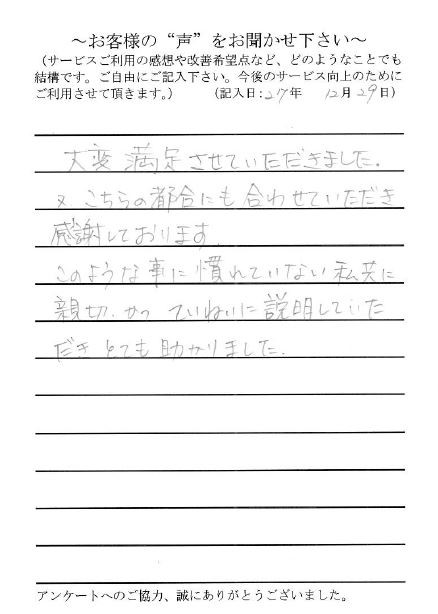 ～お客様の“声”をお聞かせ下さい～
（サービスご利用の感想や改善希望点など、どのようなことでも
結構です。ご自由にご記入下さい。今後のサービス向上のために
ご利用させて頂きます。）　（記入日：27年　12月29日）
大変満足させていただきました。
又こちらの都合にも合わせていただき
感謝しております。
このような事に慣れていない私共に
親切、かつ ていねいに説明していた
だき とても助かりました。
アンケートへのご協力、誠にありがとうございました。